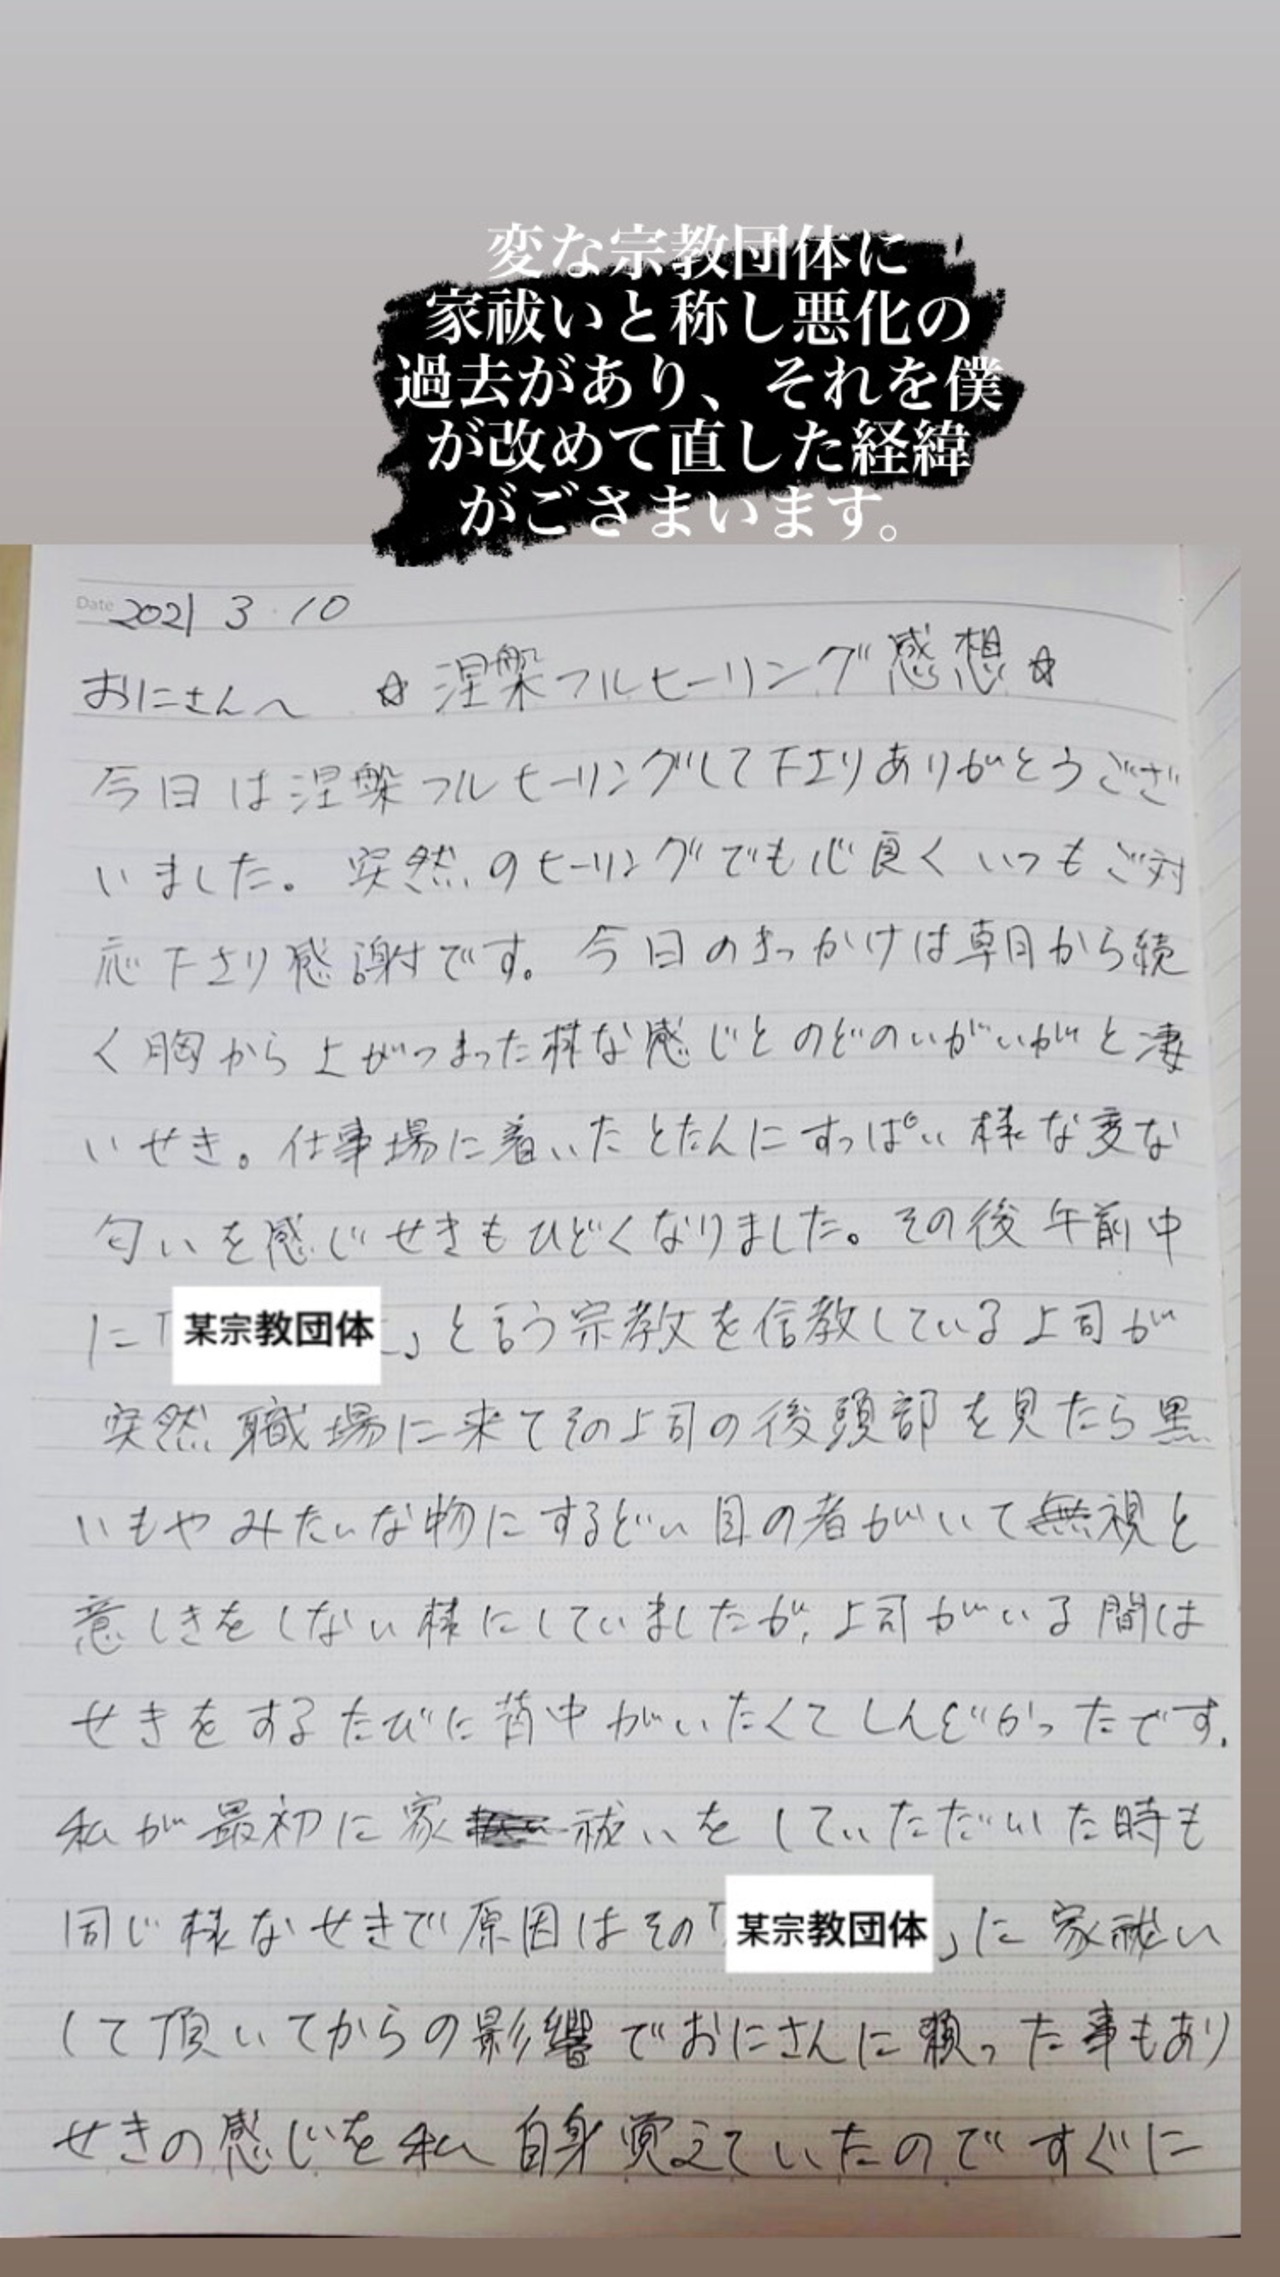 変な宗教団体に
家祓いと称し悪化の
過去があり、それを僕
が改めて直した経緯
がごさまいます。
Date 2021 3・10
おにさんへ ☆涅槃フルヒーリング感想☆
今日は涅槃フルヒーリングして下さりありがとうござ
いました。突然のヒーリングでも心良くいつもご対
応下さり感謝です。今日のきっかけは朝から続
く胸から上がつまった様な感じとのどのいがいがと凄
いせき。仕事場に着いたとたんにすっぱい様な変な
匂いを感じせきもひどくなりました。その後午前中
に「某宗教団体」と言う宗教を信教している上司が
突然職場に来てその上司の後頭部を見たら黒
いもやみたいな物にするどい目の者がいて無視と
意しきをしない様にしていましたが、上司がいる間は
せきをするたびに背中がいたくてしんどかったです。
私が最初に家祓いをしていただいた時も
同じ様なせきで原因はその「某宗教団体」に家祓い
して頂いてからの影響でおにさんに頼った事もあり
せきの感じを私自身覚えていたのですぐに